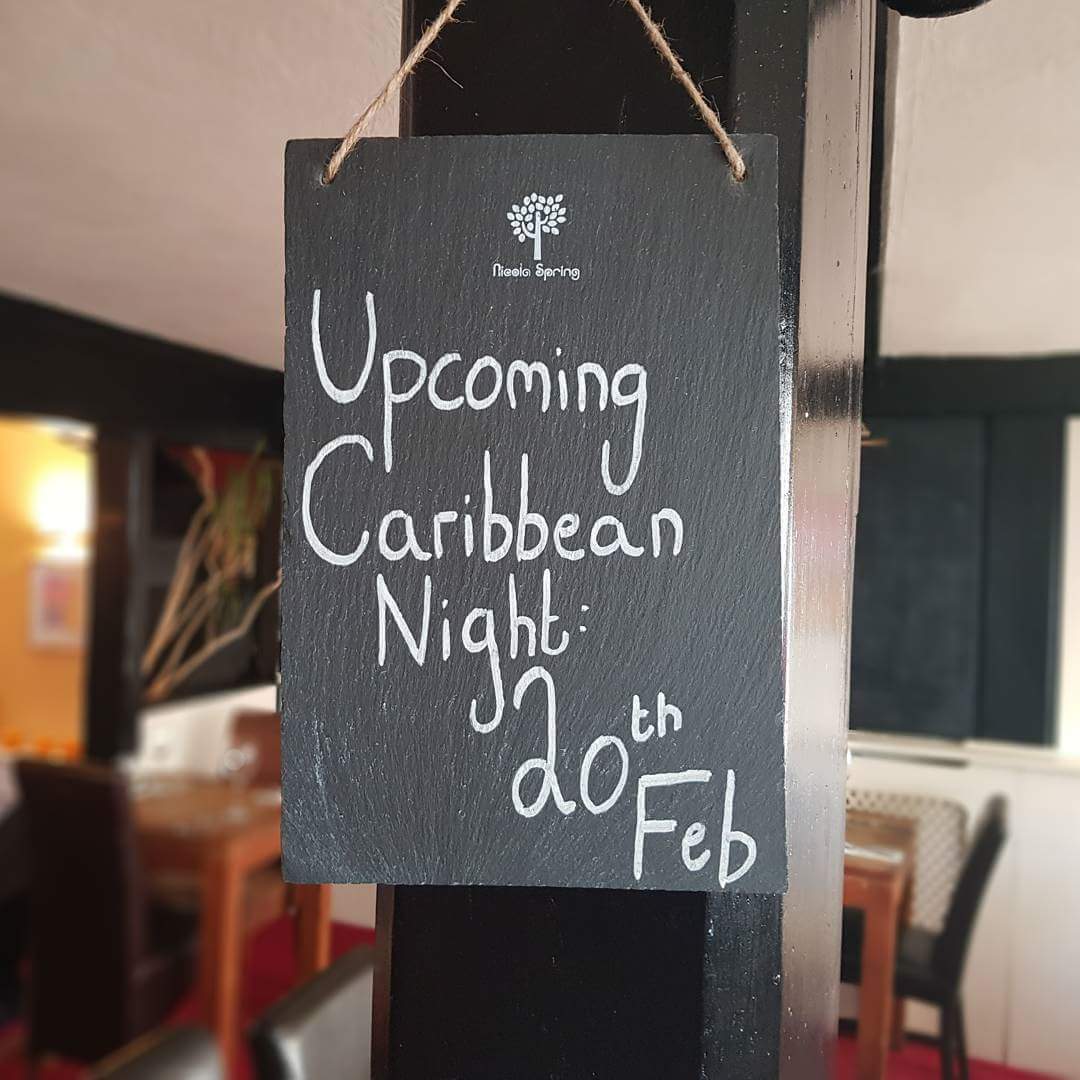 Nicola Spring
Upcoming
Caribbean
Night:
20th
Feb